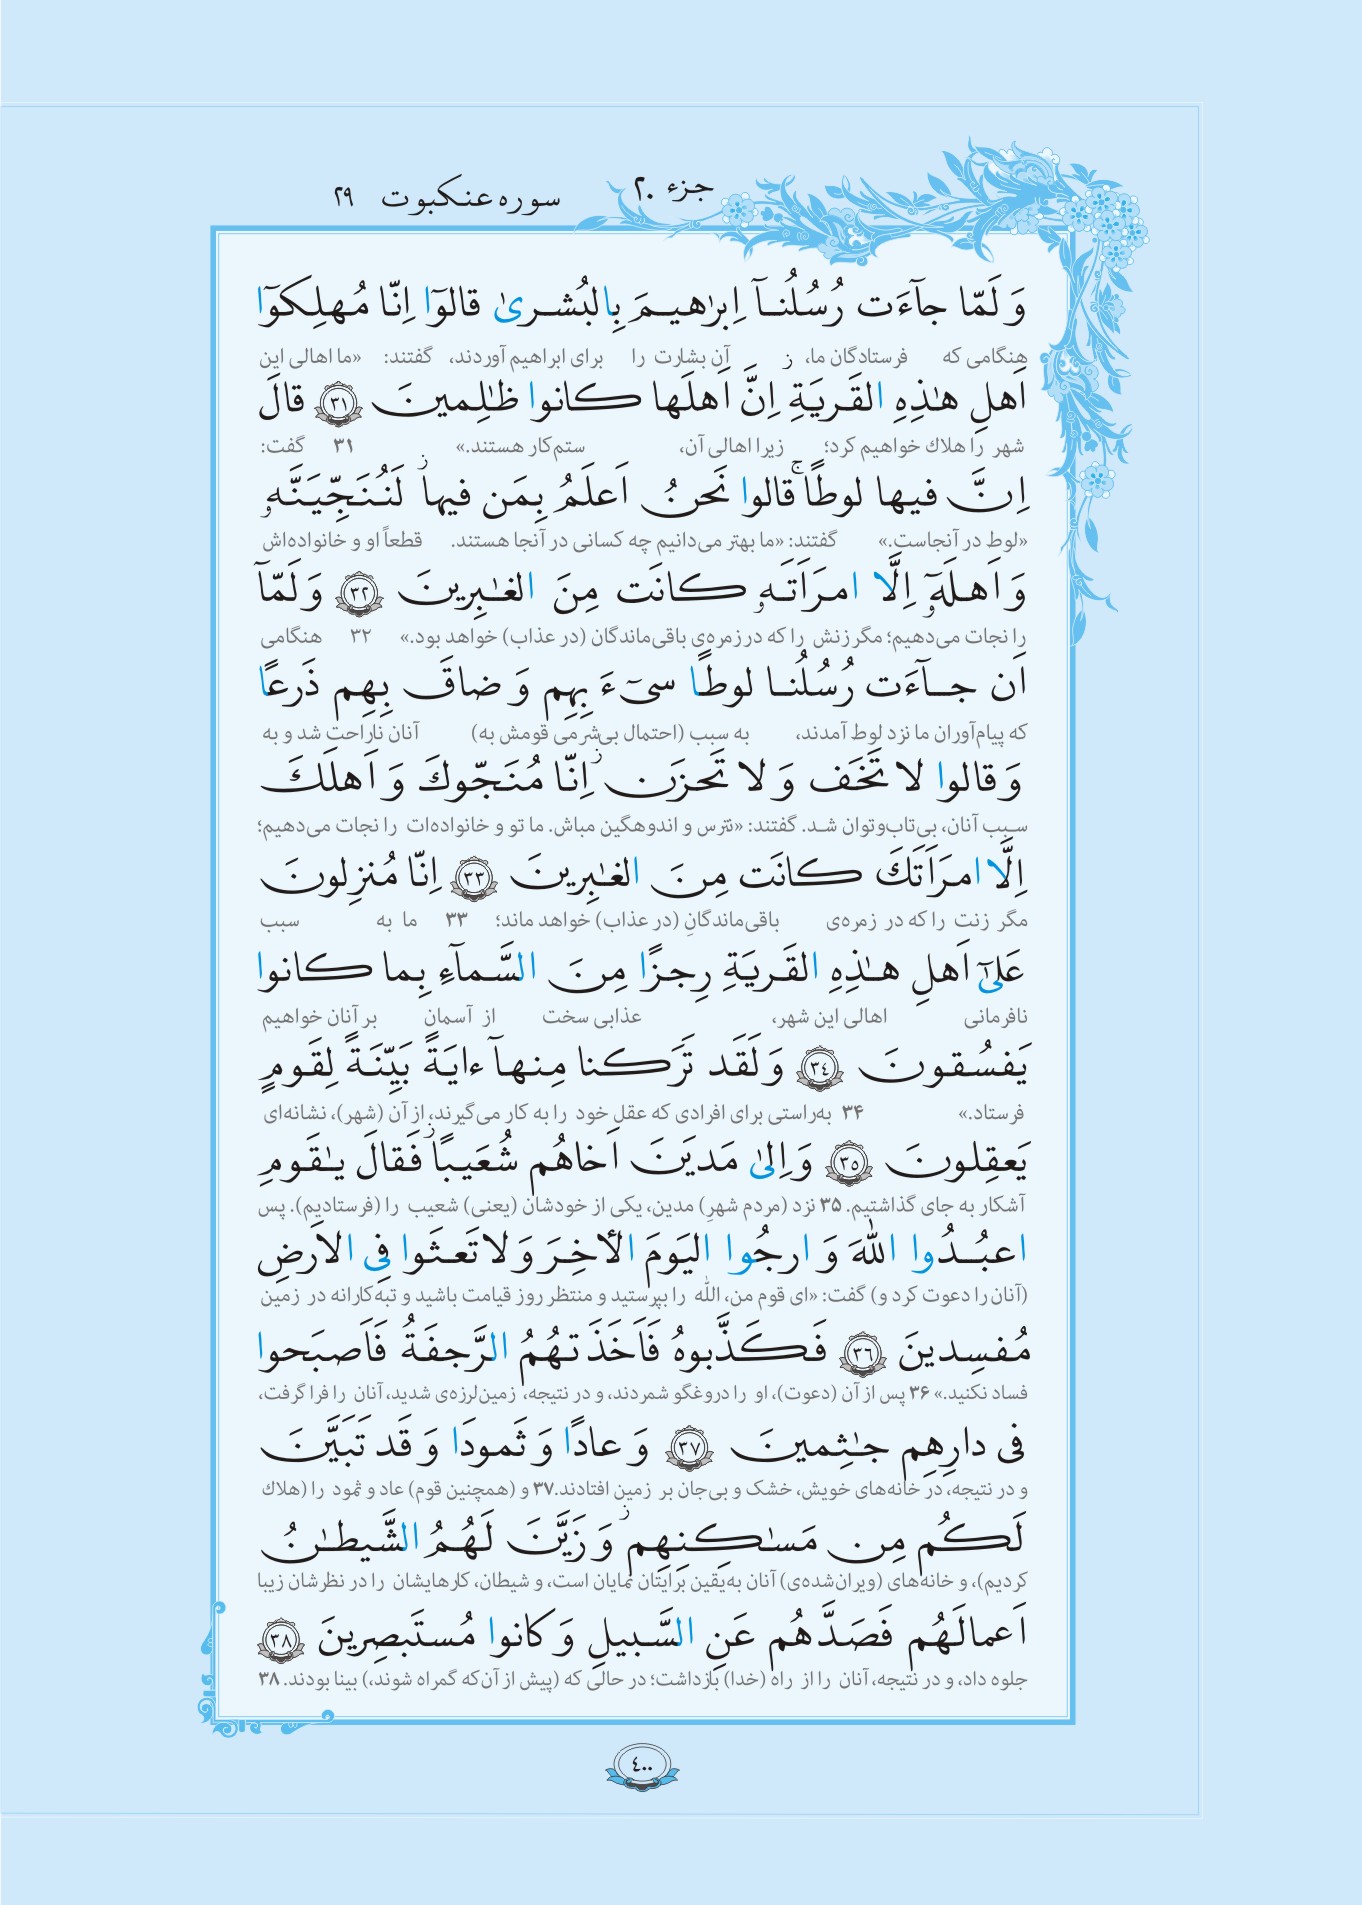 جزء ۲۰
سوره عنكبوت ۲۹
وَ لَمّا جآءَت رُسُلُنآ اِبرٰهیمَ بِالبُشریٰ قالوٓا اِنّا مُهلِكوٓا
هنگامی که فرستادگان ما، آن بشارت را برای ابراهیم آوردند، گفتند: «ما اهالی این
اَهلِ هٰذِهِ القَریَةِ ۖ اِنَّ اَهلَها كانوا ظٰلِمینَ ﴿٣١﴾ قالَ
شهر را هلاک خواهیم کرد؛ زیرا اهالی آن، ستم‌کار هستند.» ۳۱ گفت:
اِنَّ فیها لوطًا ۚ قالوا نَحنُ اَعلَمُ بِمَن فیها ز لَنُنَجِّیَنَّهٗ
«لوط در آنجاست.» گفتند: «ما بهتر می‌دانیم چه کسانی در آنجا هستند. قطعاً او و خانواده‌اش
وَ اَهلَهٗٓ اِلَّا امرَاَتَهٗ كانَت مِنَ الغٰبِرینَ ﴿٣٢﴾ وَ لَمّآ
را نجات می‌دهیم؛ مگر زنش را که در زمره‌ی باقی‌ماندگان (در عذاب) خواهد بود.» ۳۲ هنگامی
اَن جآءَت رُسُلُنا لوطًا سیٓءَ بِهِم وَ ضاقَ بِهِم ذَرعًا
که پیام‌آوران ما نزد لوط آمدند، به سبب (احتمال بی‌شرمی قومش به) آنان ناراحت شد و به
وَ قالوا لا تَخَف وَ لا تَحزَن ز اِنّا مُنَجّوكَ وَ اَهلَكَ
سبب آنان، بی‌تاب‌وتوان شد. گفتند: «نترس و اندوهگین مباش. ما تو و خانواده‌ات را نجات می‌دهیم؛
اِلَّا امرَاَتَكَ كانَت مِنَ الغٰبِرینَ ﴿٣٣﴾ اِنّا مُنزِلونَ
مگر زنت را که در زمره‌ی باقی‌ماندگانِ (در عذاب) خواهد ماند؛ ۳۳ ما به سبب
عَلیٰٓ اَهلِ هٰذِهِ القَریَةِ رِجزًا مِنَ السَّمآءِ بِما كانوا
نافرمانی اهالی این شهر، عذابی سخت از آسمان بر آنان خواهیم
یَفسُقونَ ﴿٣٤﴾ وَ لَقَد تَرَكنا مِنهآ ءایَةً بَیِّنَةً لِقَومٍ
فرستاد.» ۳۴ به‌راستی برای افرادی که عقل خود را به کار می‌گیرند، از آن (شهر)، نشانه‌ای
یَعقِلونَ ﴿٣٥﴾ وَ اِلیٰ مَدیَنَ اَخاهُم شُعَیبًا ز فَقالَ یٰقَومِ
آشکار به جای گذاشتیم. ۳۵ نزد (مردم شهرِ) مدین، یکی از خودشان (یعنی) شعیب را (فرستادیم). پس
اعبُدُوا اللّٰهَ وَ ارجُوا الیَومَ الأخِرَ وَ لا تَعثَوا فِی الاَرضِ
(آنان را دعوت کرد و) گفت: «ای قوم من، اللّٰه را بپرستید و منتظر روز قیامت باشید و تبه‌کارانه در زمین
مُفسِدینَ ﴿٣٦﴾ فَكَذَّبوهُ فَاَخَذَتهُمُ الرَّجفَةُ فَاَصبَحوا
فساد نکنید.» ۳۶ پس از آن (دعوت)، او را دروغگو شمردند، و در نتیجه، زمین‌لرزه‌ی شدید، آنان را فرا گرفت،
فی دارِهِم جٰثِمینَ ﴿٣٧﴾ وَ عادًا وَ ثَمودَا وَ قَد تَبَیَّنَ
و در نتیجه، در خانه‌های خویش، خشک و بی‌جان بر زمین افتادند. ۳۷ و (همچنین قوم) عاد و ثمود را (هلاک
لَكُم مِن مَسٰكِنِهِم ز وَ زَیَّنَ لَهُمُ الشَّیطٰنُ
کردیم)، و خانه‌های (ویران‌شده‌ی) آنان به‌یقین برایتان نمایان است، و شیطان، کارهایشان را در نظرشان زیبا
اَعمالَهُم فَصَدَّهُم عَنِ السَّبیلِ وَ كانوا مُستَبصِرینَ ﴿٣٨﴾
جلوه داد، و در نتیجه، آنان را از راه (خدا) بازداشت؛ در حالی که (پیش از آن‌که گمراه شوند،) بینا بودند. ۳۸
٤٠٠